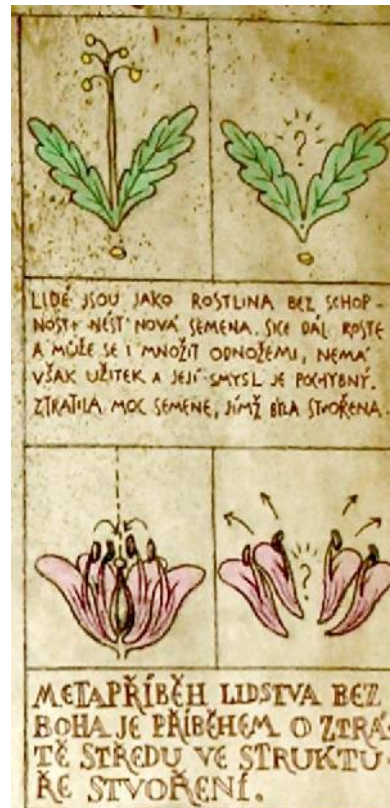 ?
LIDÉ JSOU JAKO ROSTLINA BEZ SCHOP-
NOSTI NÉST NOVÁ SEMENA. SICE DÁL ROSTE
A MŮŽE SE I MNOŽIT ODNOŽEMI, NEMÁ
VŠAK UŽITEK A JEJÍ SMYSL JE POCHYBNÝ.
ZTRATILA MOC SEMENE, JÍMŽ BYLA STVOŘENA.
?
METAPŘÍBĚH LIDSTVA BEZ
BOHA JE PŘÍBĚHEM O ZTRÁ-
TĚ STŘEDU VE STRUKTU-
ŘE STVOŘENÍ.